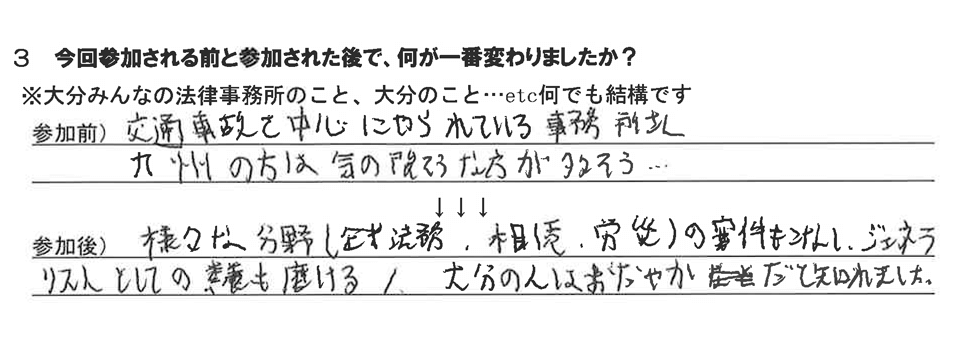 3 今回参加される前と参加された後で、何が一番変わりましたか?
※大分みんなの法律事務所のこと、大分のこと…etc何でも結構です
参加前) 交通事故を中心にやられている事務所さん
九州の方は気の強そうな方が多そう…
↓↓↓
参加後) 様々な分野(企業法務、相続、労災)の案件をこなし、ジェネラ
リストとしての素養も磨ける!、大分の人はおだやかだと知れました。